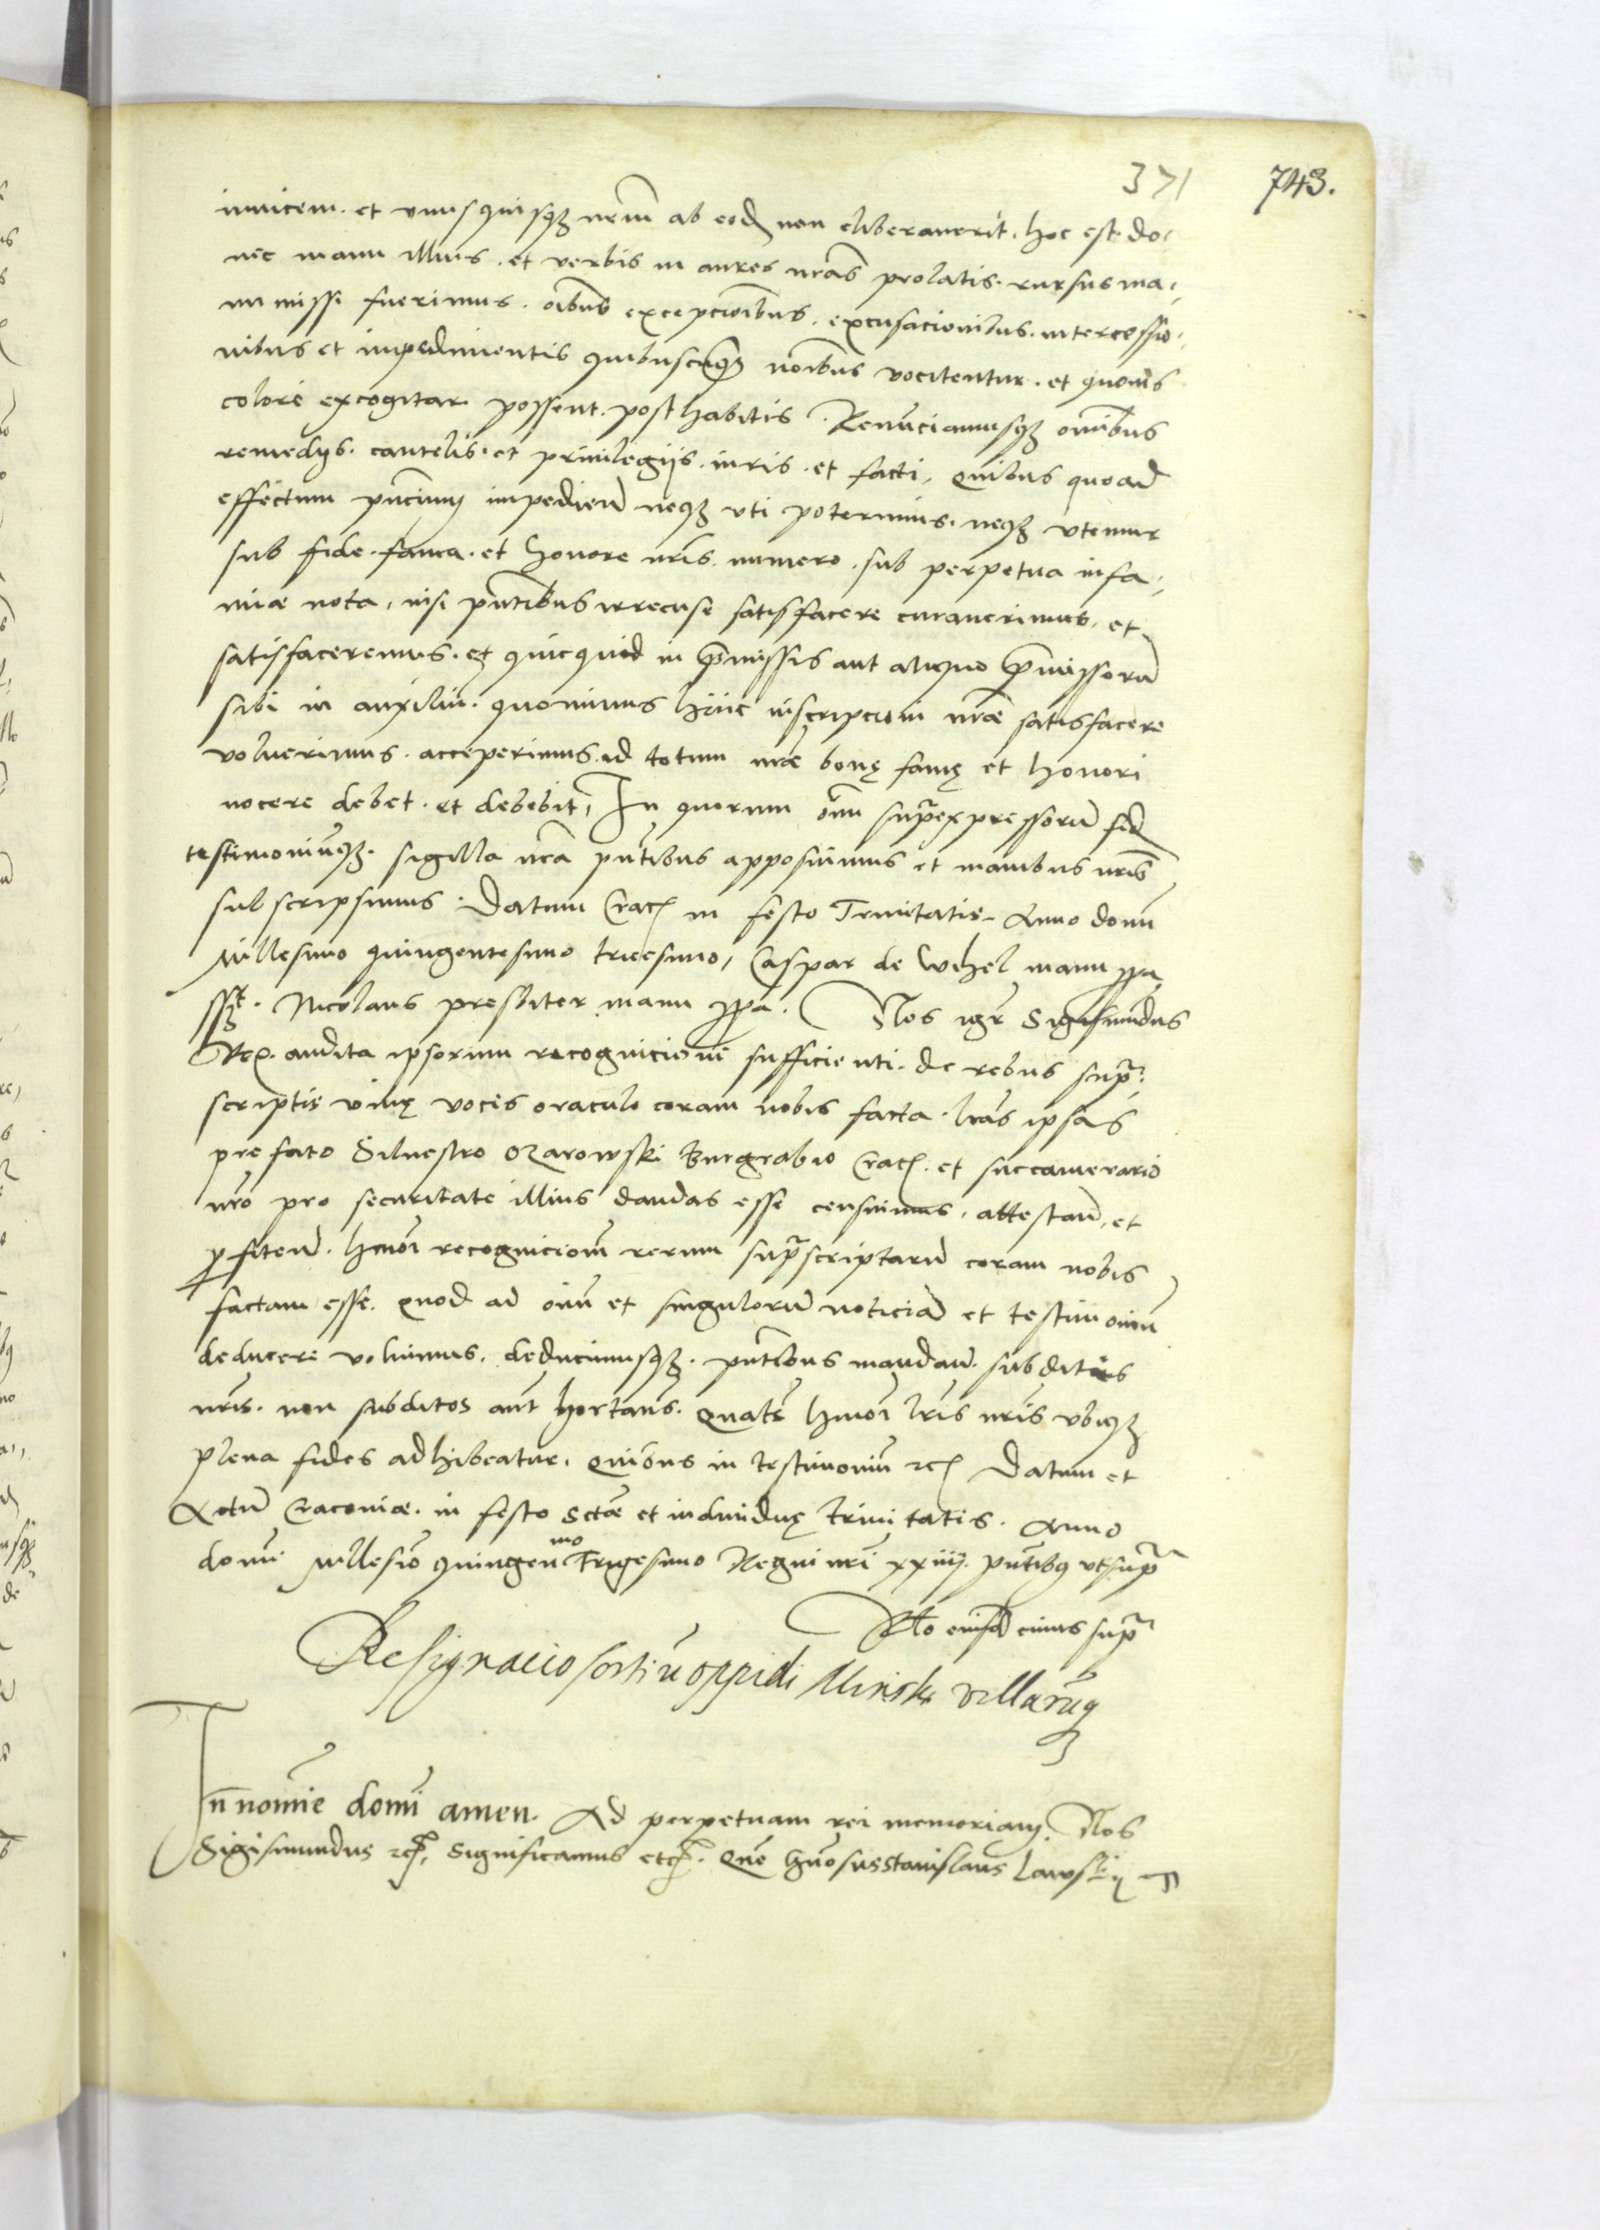 371 743.
inuicem. et vnusquisqȝ nrm̄ ab eod̄ non eliberauerit. hoc est do-
nec manu illius. et verbis in aures nrās prolatis. rursus ma-
numissi fuerimus. oībus excepcionibus. excusacionibus. intercessio-
nibus et impedimentis quibuscūqȝ noībus vocitentur. et quouis
colore excogitari possent. posthabitis. Renūciamusqȝ omībus
remedys. cautelis. et priuilegijs. iuris. et facti, quibus quoad
effectum pn̄cium impediend̄ neqȝ vti poterimus. neqȝ vtemur
sub fide. fama. et honore nrīs. numero. sub perpetua infa-
miae nota, nisi pn̄tibus irrecuse satisfacere curauerimus, et
satisfaceremus. et quicquid in p̄missis aut aliquo p̄missorū
sibi in auxiliū. quominus huic inscripcioni nrāe satisfacere
voluerimus. acceperimus. id totum nrāe bonę famę et honori
nocere debet. et debebit, In quorum oīm sup̄expressorū fid̄
testimoniūqȝ. sigilla nrā pn̄tibus apposuimus et manibus nrīs
subscripsimus. Datum Crac in festo Trinitatis. Anno domī
Millesimo quingentesimo tricesimo, Caspar de Wehel manu ppa
sst. Nicolaus presbiter manu ppa. Nos igr̄ Sigismundus
Rex. audita ipsorum recognicione sufficienti. de rebus supra
scriptis viuę vocis oraculo coram nobis facta. lrās ipsas
prefato Siluestro Ozarowski Burgrabio Crac. et succamerario
nrō pro securitate illius dandas esse censuimus, attestan̄. et
profiten̄. hmōi recognicionem rerum sup̄scriptarū coram nobis
factam esse. quod ad oīm et singulorū noticiā et testimoniū
deducere volumus. deducimusqȝ. pn̄tibus mandan̄. subditis
nrīs. non subditos aūt hortan̄. quatn̄s hmōi lrīs nrīs vbiqȝ
plena fides adhibeatur. quibus in testimoniū etc. Datum et
Actū Cracouiae. in festo Sctāe et indiuiduę trinitatis. Anno
domī Millesīo quingenmo Trigesimo Regni nrī xxiiij. pn̄tibus vt sup̄
Rlo eiusd̄ cuius sup̄
Resignacio sortiū oppidi Minsk villarūq
In nomīe domī amen. Ad perpetuam rei memoriam. Nos
Sigismundus etc, Significamus etc. Quō Gnōsus Stanislaus Lawski